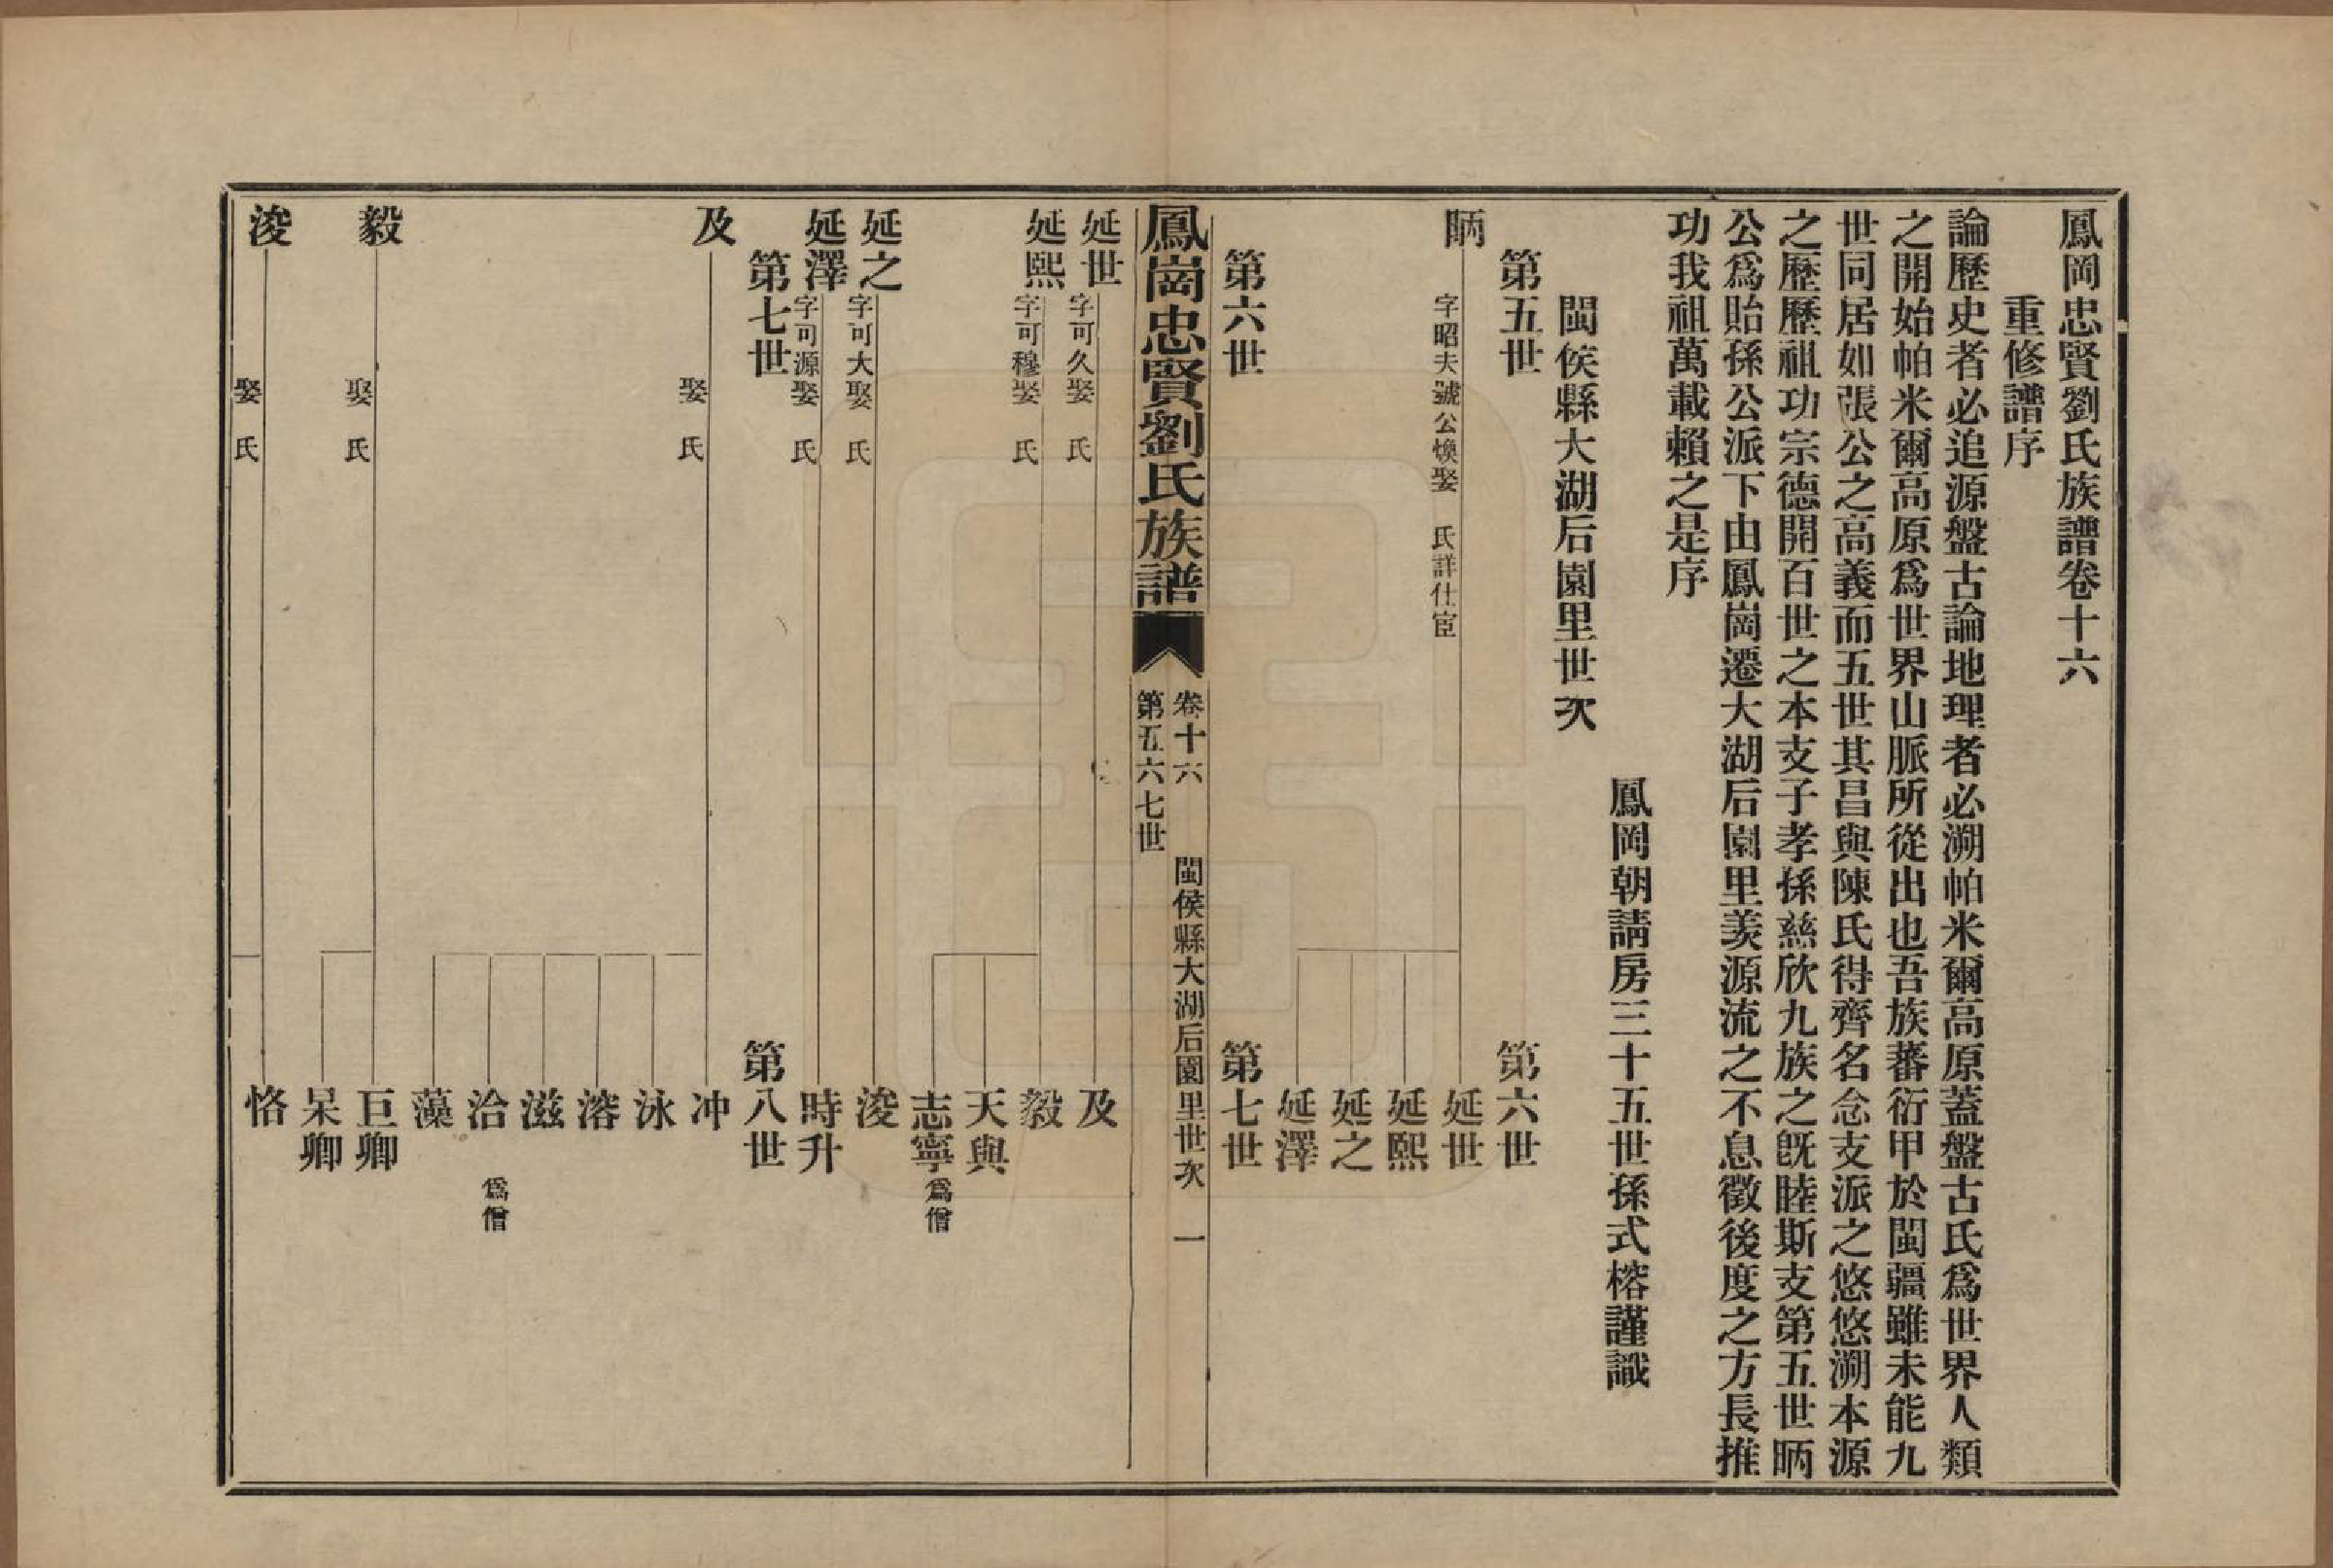 鳳岡忠賢劉氏族譜卷十六
重修譜序
論歷史者必追源盤古論地理者必溯帕米爾高原蓋盤古氏爲世界人類
之開始帕米爾高原爲世界山脈所從出也吾族蕃衍甲於閩疆雖未能九
世同居如張公之高義而五世其昌與陳氏得齊名念支派之悠悠溯本源
之歷歷祖功宗德開百世之本支子孝孫慈欣九族之既睦斯支第五世昞
公爲貽孫公派下由鳳崗遷大湖后園里羨源流之不息徵後度之方長推
功我祖萬載賴之是序
鳳岡朝請房三十五世孫式榕謹識
閩侯縣大湖后園里世次
第五世
第六世
昞
字昭夫號公煥娶 氏詳仕宦
延世
延熙
延之
延澤
第六世
第七世
鳳崗忠賢劉氏族譜
卷十六 閩侯縣大湖后園里世次 一
第五六七世
延世
字可久娶 氏
及
延熙
字可穆娶 氏
毅
天與
志寧爲僧
延之
字可大娶 氏
浚
延澤
字可源娶 氏
時升
第七世
第八世
及
娶 氏
冲
泳
溶
滋
洽 爲僧
藻
毅
娶 氏
巨卿
杲卿
浚
娶 氏
恪